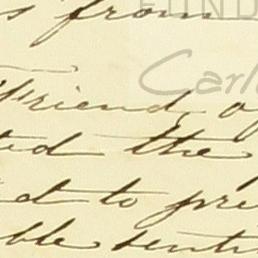 s from
FUND
Carl
friend, a
ted the
d to pre
ble senti